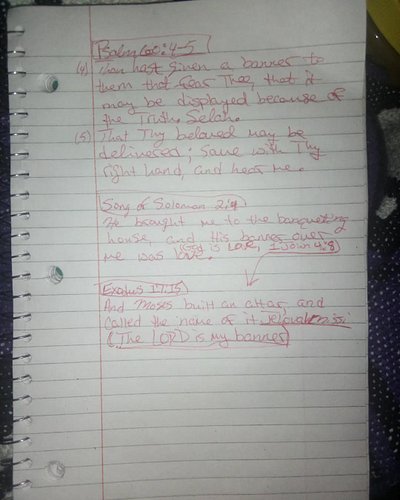 Psalm 60:4-5
(4) Thou hast given a banner to
them that fear Thee, that it
may be displayed because of
the Truth. Selah.
(5) That Thy beloved may be
delivered; save with Thy
right hand, and hear me.
Song of Solomon 2:4
He brought me to the banqueting
house, and His banner over
me was love. (God is Love, 1 John 4:8)
Exodus 17:15
And Moses built an altar, and
called the name of it Jehovah-nissi
(The LORD is my banner)